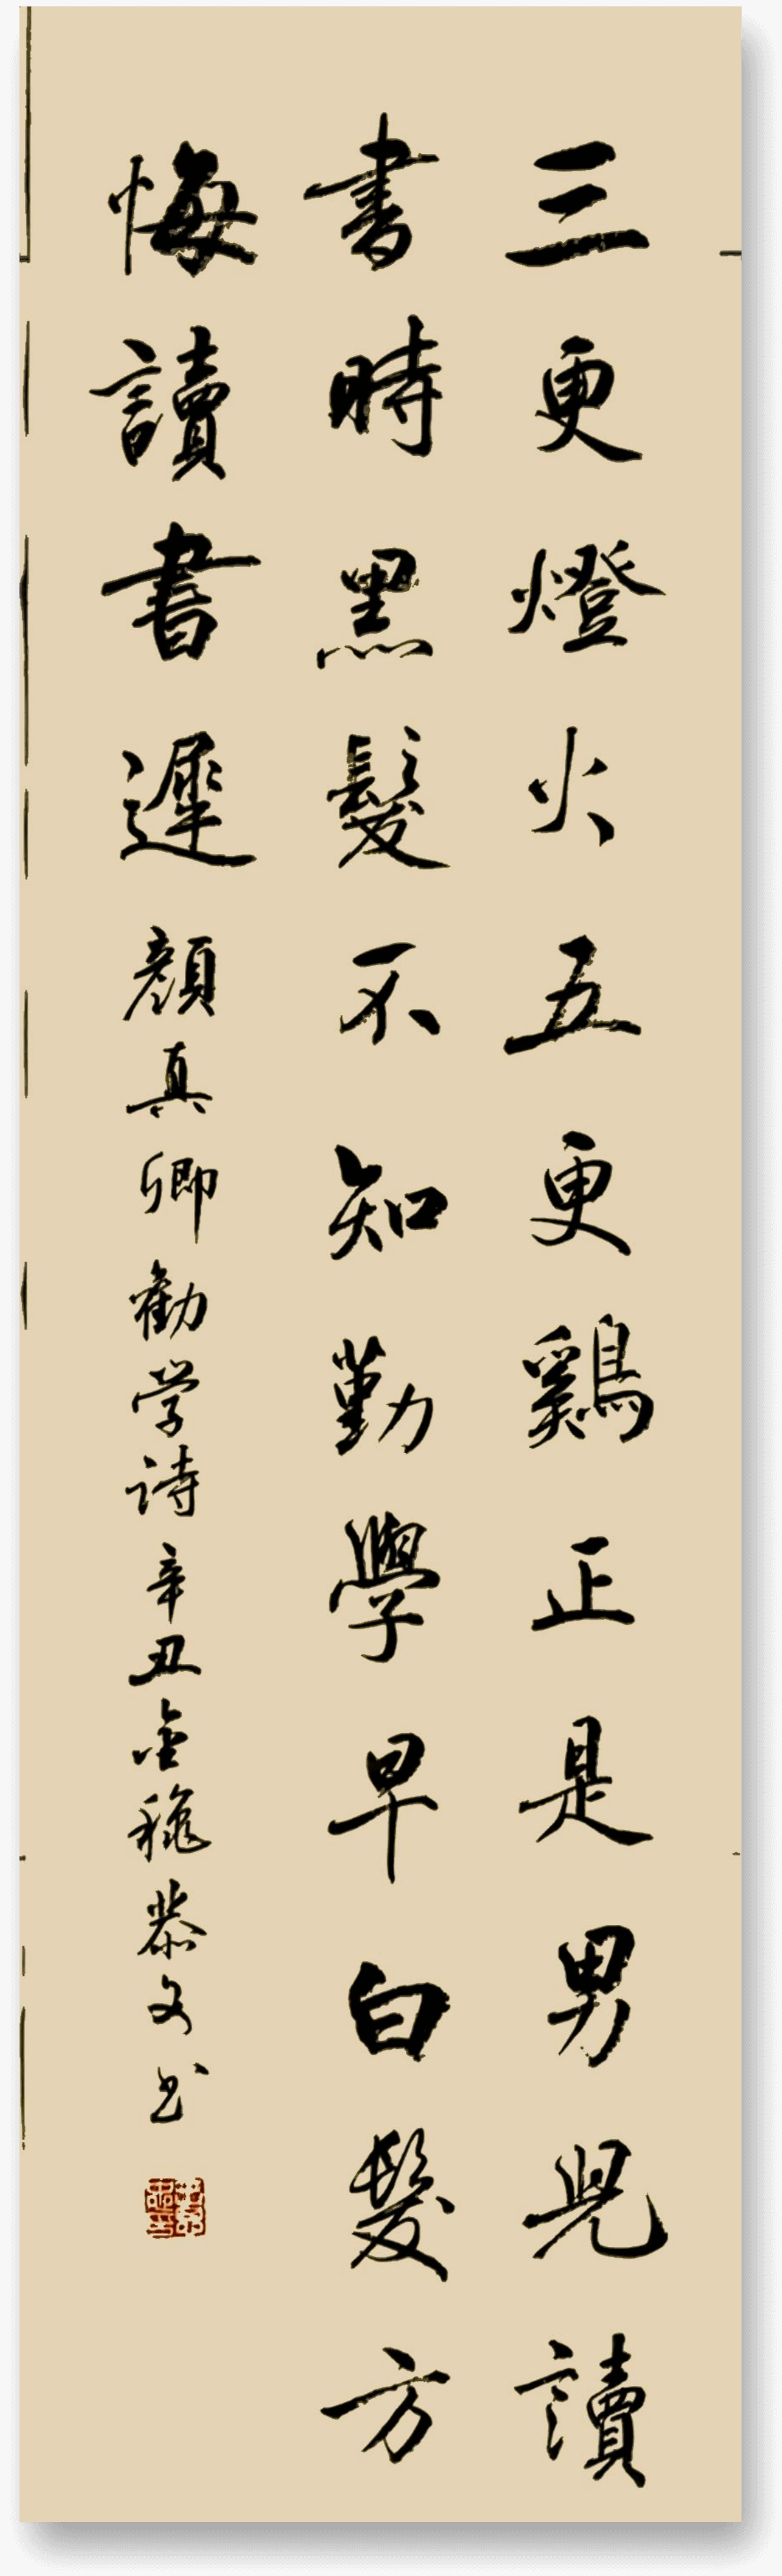 三更燈火五更鷄正是男兒讀
書時黑髮不知勤學早白髮方
悔讀書遲顏真卿勸学诗辛丑金穐慕文书